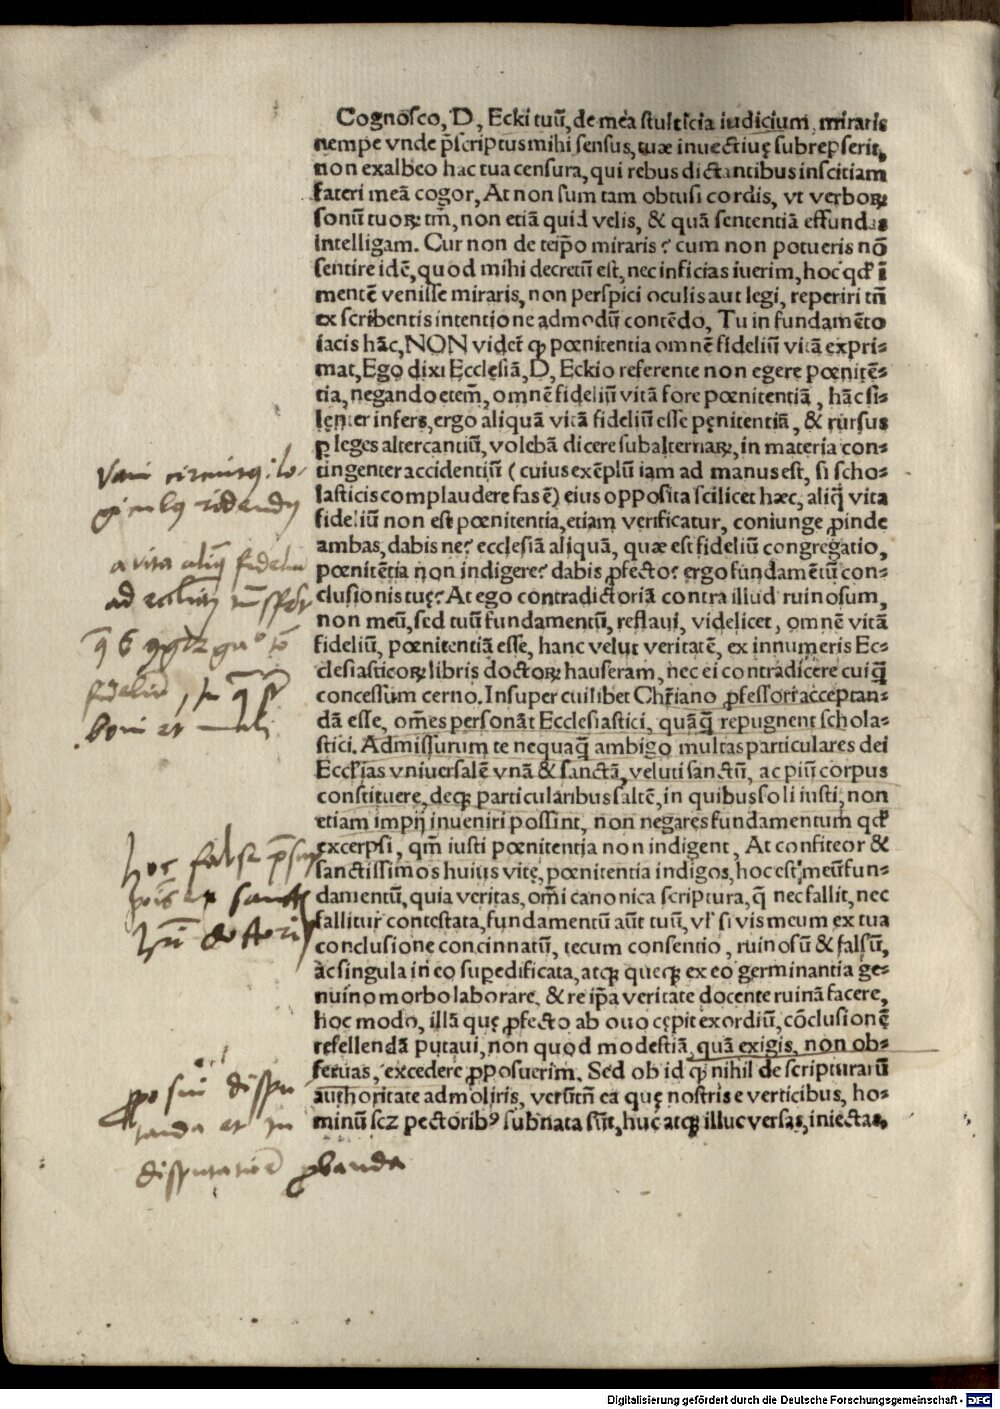 Cognosco, D, Ecki tuũ, de mea stulticia iudicium, miraris
nempe vnde p̃scriptus mihi sensus, tuæ inuectiuę subrepserit,
non exalbeo hac tua censura, qui rebus dictantibus inscitiam
fateri meã cogor, At non sum tam obtusi cordis, vt verboꝝ
sonũ tuoꝝ tm̃, non etiã quid velis, & quã sententiã effundas
intelligam. Cur non de teip̃o miraris? cum non potueris nõ
sentire idẽ, quod mihi decretũ est, nec inficias iuerim, hoc qd̕ ĩ
mentẽ venisse miraris, non perspici oculis aut legi, reperiri tñ
ex scribentis intentione admodũ contẽdo, Tu in fundamẽto
iacis hãc, NON videt̃ ꝙ pœnitentia omnẽ fideliũ vitã expri⸗
mat, Ego dixi Ecclęsiã, D, Eckio referente non egere pœnitẽ⸗
tia, negando etem̃, omnẽ fideliũ vitã fore pœnitentiã, hãc si⸗
lẹnter infers, ergo aliquã vitã fideliũ esse pęnitentiã, & rursus
ꝑ leges altercantiũ, volebã dicere subalternaꝝ, in materia con⸗
tingenter accidentiũ (cuius exẽplũ iam ad manus est, si scho⸗
lasticis complaudere fas ẽ) eius opposita scilicet hæc, aliq̃ vita
fideliũ non est pœnitentia, etiam verificatur, coniunge ꝓinde
ambas, dabis ne? ecclesiã aliquã, quæ est fideliũ congregatio,
pœnitẽtia non indigere? dabis ꝓfecto? ergo fundamẽtũ con⸗
clusionis tuę? At ego contradictoriã contra illud ruinosum,
non meũ, sed tuũ fundamentũ, reflaui, videlicet, omnẽ vitã
fideliũ, pœnitentiã esse, hanc velut veritatẽ, ex innumeris Ec⸗
clesiasticoꝝ libris doctoꝝ hauseram, nec ei contradicere cuiq̃ꝫ
concessum cerno. Insuper cuilibet Chr̃iano ꝓfessori acceptan⸗
dã esse, om̃es personãt Ecclesiastici, quãq̃ꝫ repugnent schola⸗
stici. Admissurum te nequaq̃ꝫ ambigo multas particulares dei
Eccl̃ias vniuersalẽ vnã & sanctã, veluti sanctũ, ac piũ corpus
constituere, deqꝫ particularibus saltẽ, in quibus soli iusti, non
etiam impij inueniri possint, non negares fundamentum qd̕
excerpsi, qm̃ iusti pœnitentia non indigent, At confiteor &
sanctissimos huius vitę, pœnitentia indigos, hoc est meũ fun⸗
damentũ, quia veritas, om̃i canonica scriptura, q̃ nec fallit, nec
fallitur contestata, fundamentũ aũt tuũ, vl̕ si vis meum ex tua
conclusione concinnatũ, tecum consentio, ruinosũ & falsũ,
ac singula in eo suꝑedificata, atqꝫ queqꝫ ex eo germinantia ge⸗
nuino morbo laborare, & re ip̃a veritate docente ruinã facere,
hoc modo, illã quę ꝓfecto ab ouo cępit exordiũ, cõclusionẽ
refellendã putaui, non quod modestiã, quã exigis, non ob⸗
seruas, excedere ꝓposuerim. Sed ob id ꝙ nihil de scripturarũ
authoritate admoliris, verũtñ ea quę nostris e verticibus, ho⸗
minũ scꝫ pectoribꝰ subnata sũt, huc atqꝫ illuc versas, iniectas,
a vita aliq̃ fideliũ
boni et mali
hoc falsũ
doctori
disputatiõe ꝓbanda
Digitalisierung gefördert durch die Deutsche Forschungsgemeinschaft - DFG